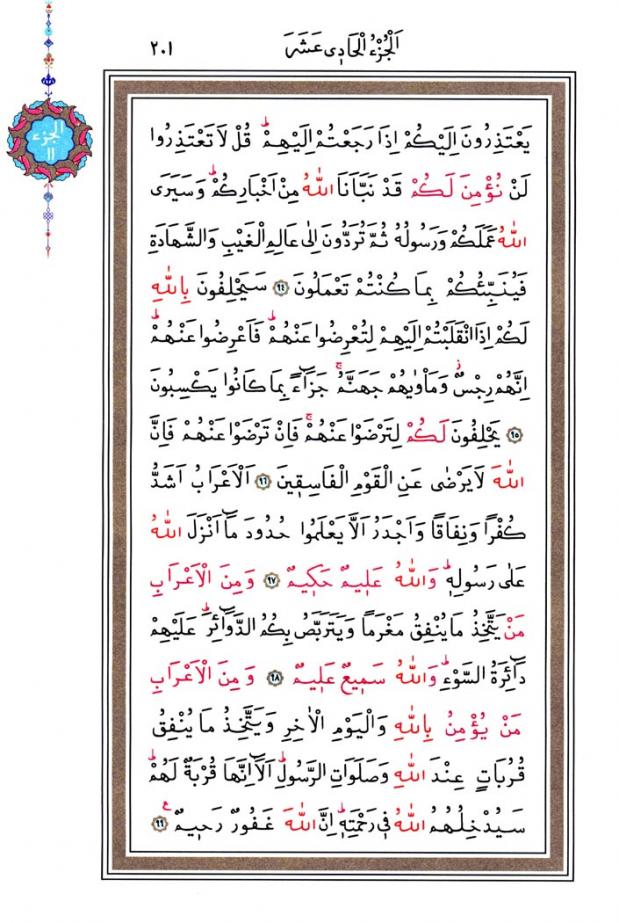 اَلْجُزْءُ الْحَادِى عَشَرَ
٢٠١
الجزء
١١
يَعْتَذِرُونَ اِلَيْكُمْ اِذَا رَجَعْتُمْ اِلَيْهِمْۜ قُلْ لَا تَعْتَذِرُوا
لَنْ نُؤْمِنَ لَكُمْ قَدْ نَبَّاَنَا اللّٰهُ مِنْ اَخْبَارِكُمْۜ وَسَيَرَى
اللّٰهُ عَمَلَكُمْ وَرَسُولُهُ ثُمَّ تُرَدُّونَ اِلٰى عَالِمِ الْغَيْبِ وَالشَّهَادَةِ
فَيُنَبِّئُكُمْ بِمَا كُنْتُمْ تَعْمَلُونَ ﴿٩٤﴾ سَيَحْلِفُونَ بِاللّٰهِ
لَكُمْ اِذَا انْقَلَبْتُمْ اِلَيْهِمْ لِتُعْرِضُوا عَنْهُمْۜ فَاَعْرِضُوا عَنْهُمْۜ
اِنَّهُمْ رِجْسٌۘ وَمَاْوٰيهُمْ جَهَنَّمُۚ جَزَٓاءً بِمَا كَانُوا يَكْسِبُونَ
﴿٩٥﴾ يَحْلِفُونَ لَكُمْ لِتَرْضَوْا عَنْهُمْۚ فَاِنْ تَرْضَوْا عَنْهُمْ فَاِنَّ
اللّٰهَ لَا يَرْضٰى عَنِ الْقَوْمِ الْفَاسِقٖينَ ﴿٩٦﴾ اَلْاَعْرَابُ اَشَدُّ
كُفْرًا وَنِفَاقًا وَاَجْدَرُ اَلَّا يَعْلَمُوا حُدُودَ مَٓا اَنْزَلَ اللّٰهُ
عَلٰى رَسُولِهٖۜ وَاللّٰهُ عَلٖيمٌ حَكٖيمٌ ﴿٩٧﴾ وَمِنَ الْاَعْرَابِ
مَنْ يَتَّخِذُ مَا يُنْفِقُ مَغْرَمًا وَيَتَرَبَّصُ بِكُمُ الدَّوَٓائِرَۜ عَلَيْهِمْ
دَٓائِرَةُ السَّوْءِۜ وَاللّٰهُ سَمٖيعٌ عَلٖيمٌ ﴿٩٨﴾ وَمِنَ الْاَعْرَابِ
مَنْ يُؤْمِنُ بِاللّٰهِ وَالْيَوْمِ الْاٰخِرِ وَيَتَّخِذُ مَا يُنْفِقُ
قُرُبَاتٍ عِنْدَ اللّٰهِ وَصَلَوَاتِ الرَّسُولِۜ اَلَٓا اِنَّهَا قُرْبَةٌ لَهُمْۜ
سَيُدْخِلُهُمُ اللّٰهُ فٖى رَحْمَتِهٖۜ اِنَّ اللّٰهَ غَفُورٌ رَحٖيمٌ ﴿٩٩﴾